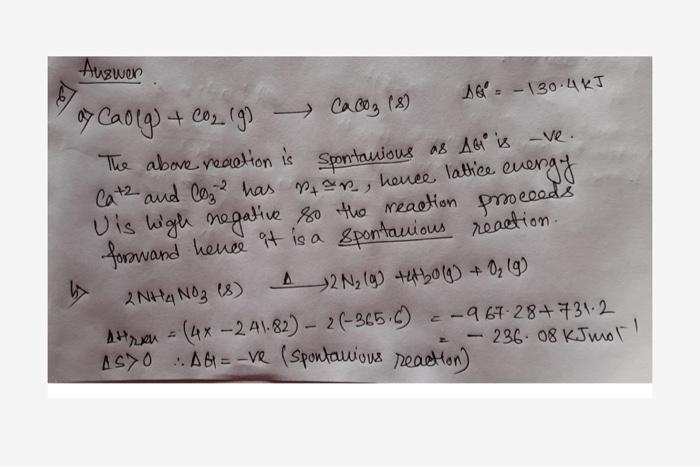 Answer
6) a) CaO(g) + CO2 (g) → CaCO3 (s) ΔG° = -130.4 kJ
The above reaction is spontanious as ΔG° is -ve.
Ca+2 and CO3-2 has r+ ≅ r-, hence lattice energy
U is high negative so the reaction proceeds
forward hence it is a spontanious reaction.
b) 2NH4NO3 (s) Δ→ 2N2(g) + 4H2O(g) + O2(g)
ΔHrxn = (4x -241.82) - 2(-365.6) = -967.28 + 731.2
= - 236.08 KJmol-1
ΔS>0 ∴ ΔG = -ve (spontanious reaction)